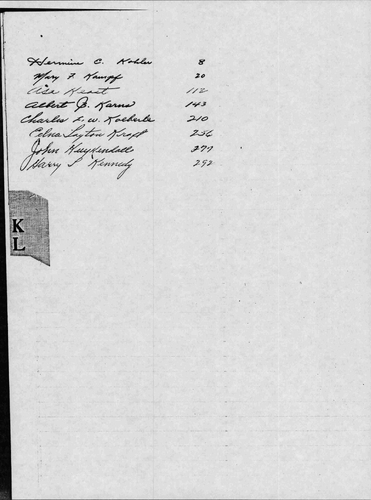 Hermine C. Kohler 8
Mary F Kampf 20
Asa Keast 112
Albert B. Karns 143
Charles L. W. Koeberle 210
Edna Layton Kropf 236
John Kuykendall 277
Harry S Kennedy 292
K
L